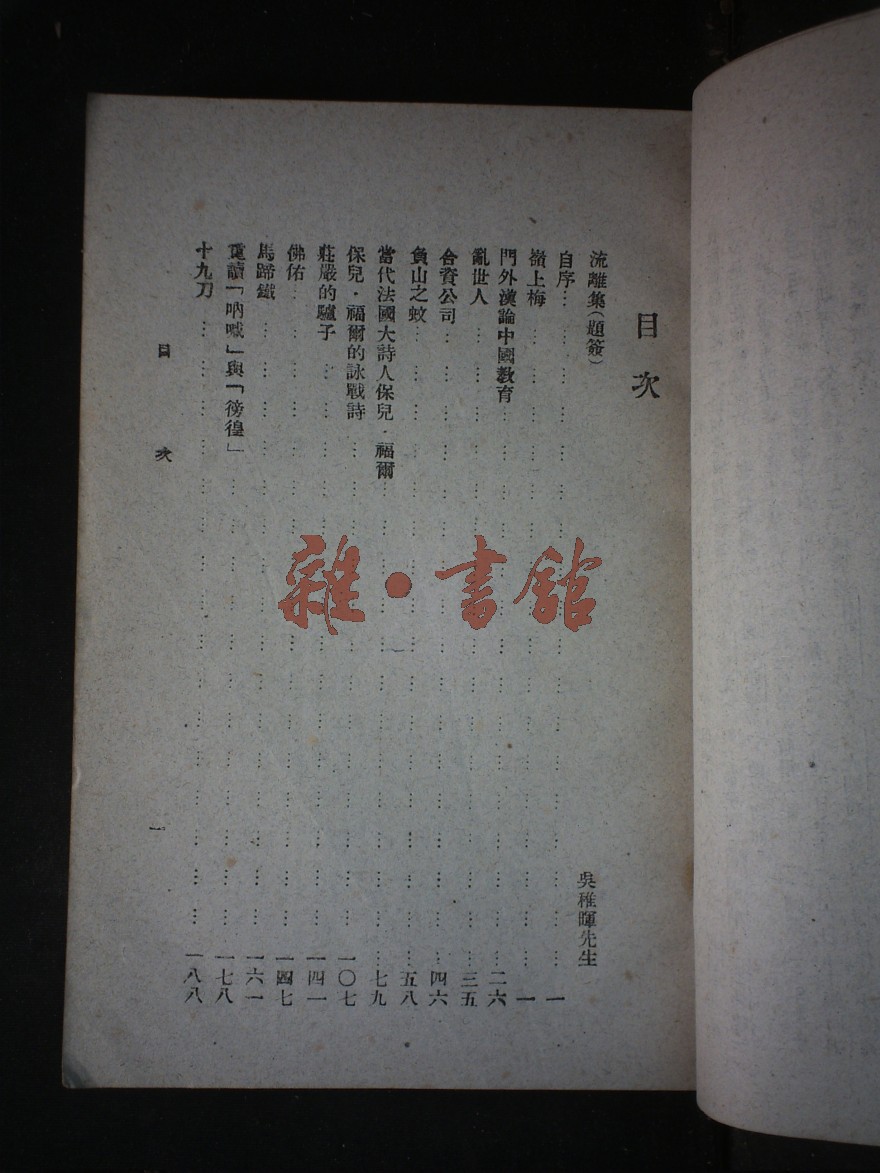 目次
流離集(題簽) 吳稚暉先生
自序………………………一
嶺上梅………………………一
門外漢論中國敎育………………………二六
亂世人………………………三五
合資公司………………………四六
負山之蚊………………………五八
當代法國大詩人保兒·福爾………………………七九
保兒·福爾的詠戰詩………………………一〇七
莊嚴的驢子………………………一四一
佛佑………………………一四七
馬蹄鐵………………………一六一
重讀「吶喊」與「徬徨」………………………一七八
十九刀………………………一八八
目次 一
雜·書館